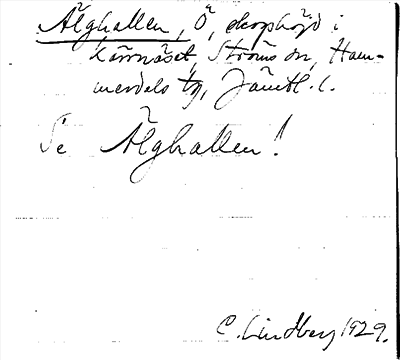 Älghallen, Ö, skogshöjd i
Kärrnäset, Ströms sn, Ham-
merdals tg, Jämtl. l.
Se Älghallen!
C. Lindberg 1929.